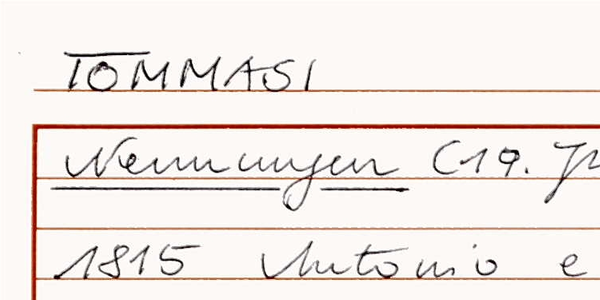 TOMMASI
Nennungen (19. J
1815 Antonio e